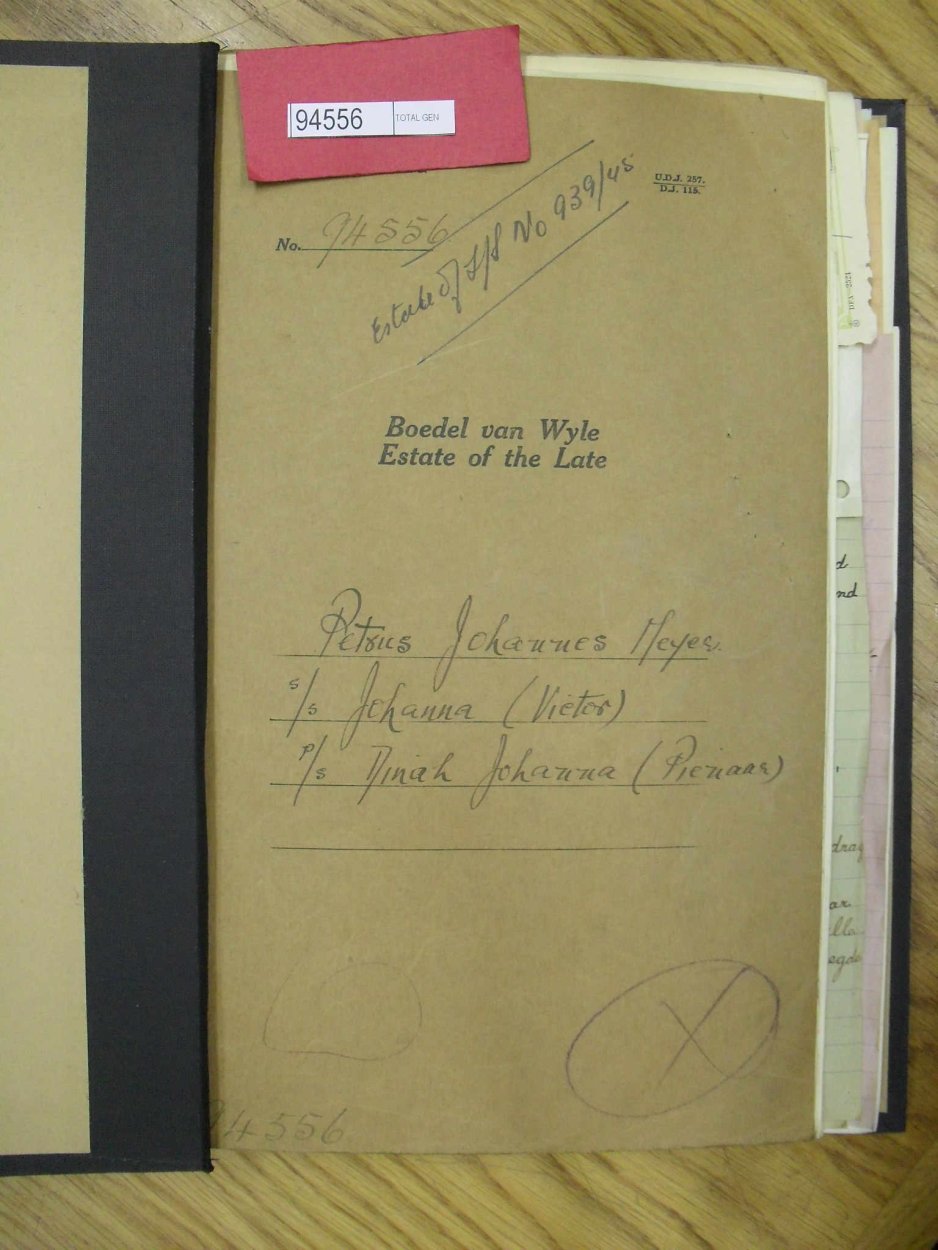 94556 TOTAL GEN
U.D.J. 257.
D.J. 115.
No. 94556
Estate of S/S No 939/45
Boedel van Wyle
Estate of the Late
Petrus Johannes Meyer.
s/s Johanna (Victor)
p/s Dinah Johanna (Pienaar)
X
94556
DFA-2521
d
nd
drag
ar
lla
egde